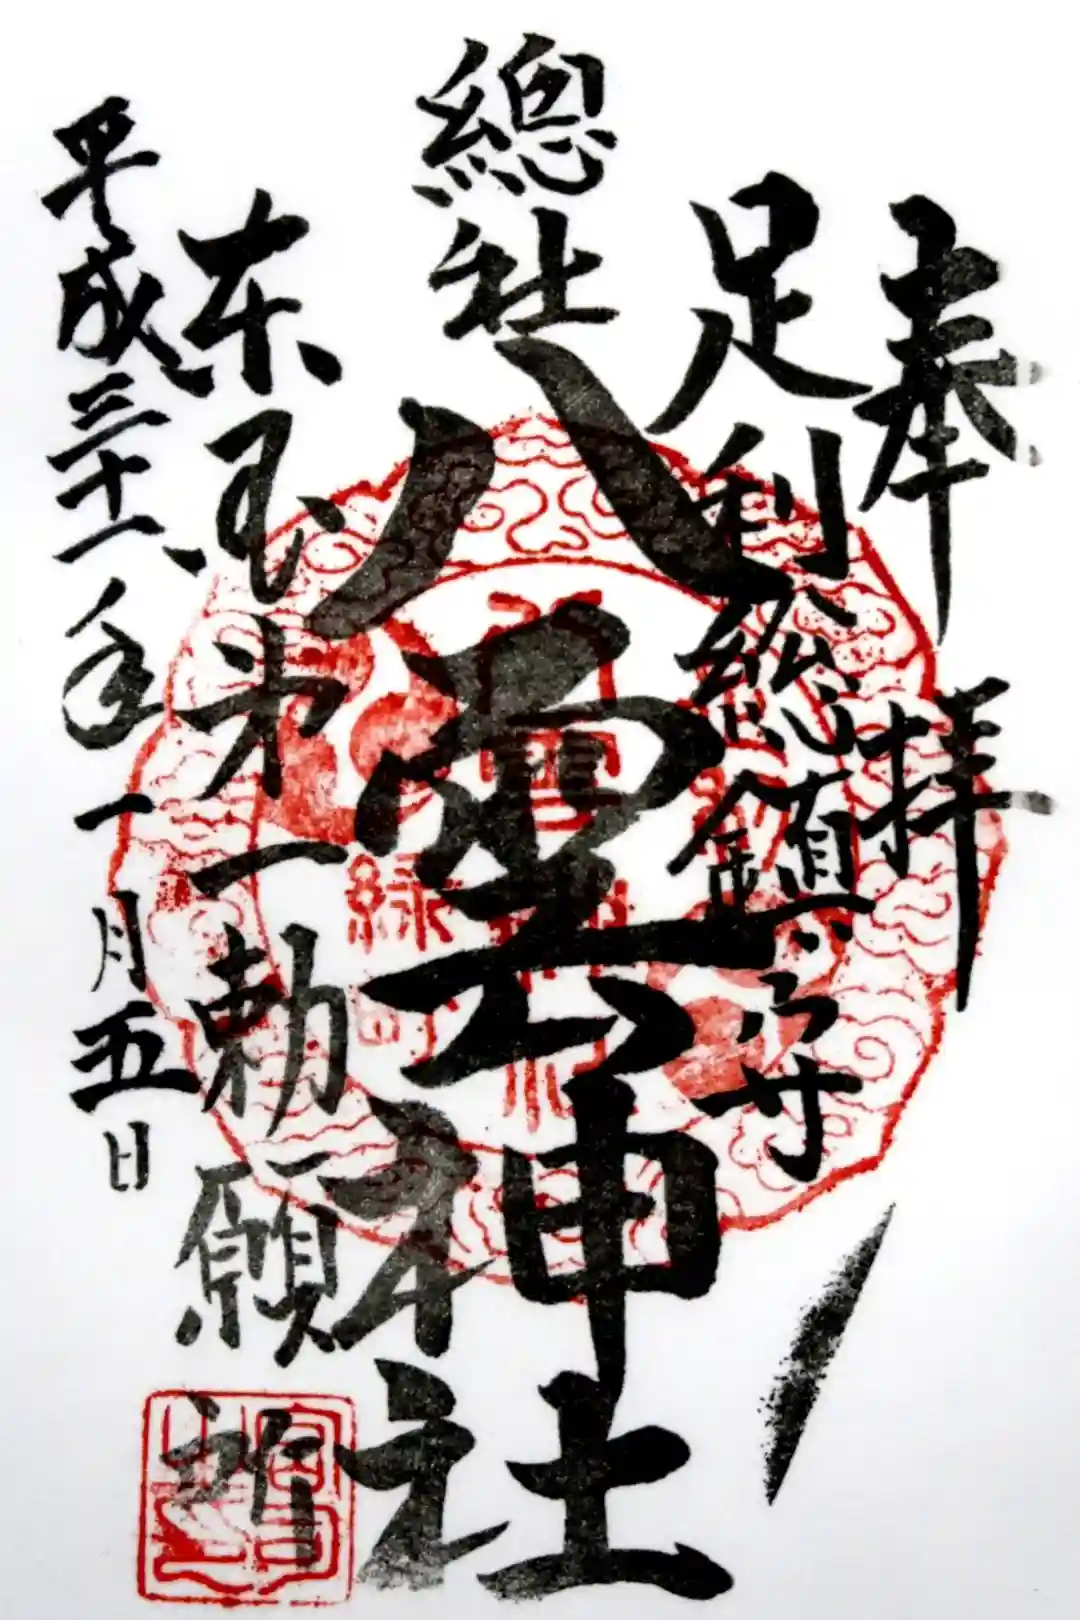 奉拝
足利総鎮守
總社
八雲神社
東國第一勅願所
平成三十一年一月五日